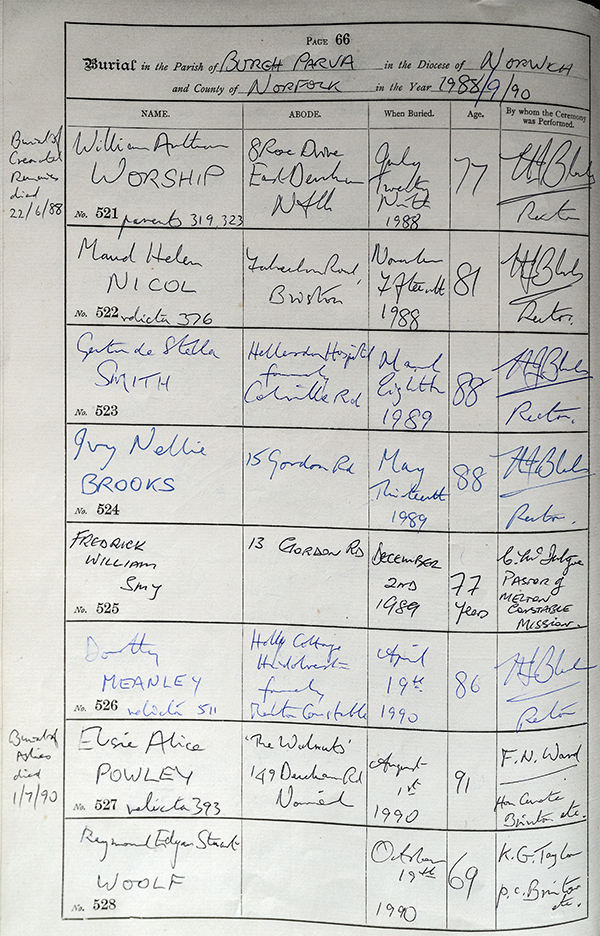 PAGE 66
Burial in the Parish of BURGH PARVA in the Diocese of NORWICH
and County of NORFOLK in the Year 1988/9/90
NAME.
ABODE.
When Buried.
Age.
By whom the Ceremony
was Performed.
Burial of
Cremated
Remains
died
22/6/88
William
WORSHIP
No. 521 parents 319, 323
8 Rose Drive
East Dereham
Nflk
July
Twenty
Ninth
1988
77
Rector
Maud Helen
NICOL
No. 522 relicta 376
Fakenham Road
Briston
November
Fifteenth
1988
81
Rector.
Gertrude Stella
SMITH
No. 523
Hellesdon Hospital
formerly
Colville Rd
Eighth
1989
88
Rector.
Ivy Nellie
BROOKS
No. 524
15 Gordon Rd
May
Thirteenth
1989
88
Rector.
FREDRICK
WILLIAM
SMY
No. 525
13 GORDON RD
DECEMBER
2ND
1989
77
YEARS
PASTOR of
MELTON
CONSTABLE
MISSION.
Dorothy
MEANLEY
No. 526 relicta 511
Holly Cottage
Hindolveston
formerly
Melton Constable
April
19th
1990
86
Rector
Burial of
Ashes
died
1/7/90
Elsie Alice
POWLEY
No. 527 relicta 393
'The Walnuts'
149 Dereham Rd
Norwich
August
1st
1990
91
F. N. Ward
Hon Curate
Brinton etc.
Raymond Edgar Stuart
WOOLF
No. 528
October
19th
1990
69
K. G. Taylor
p.c. Brinton
etc.